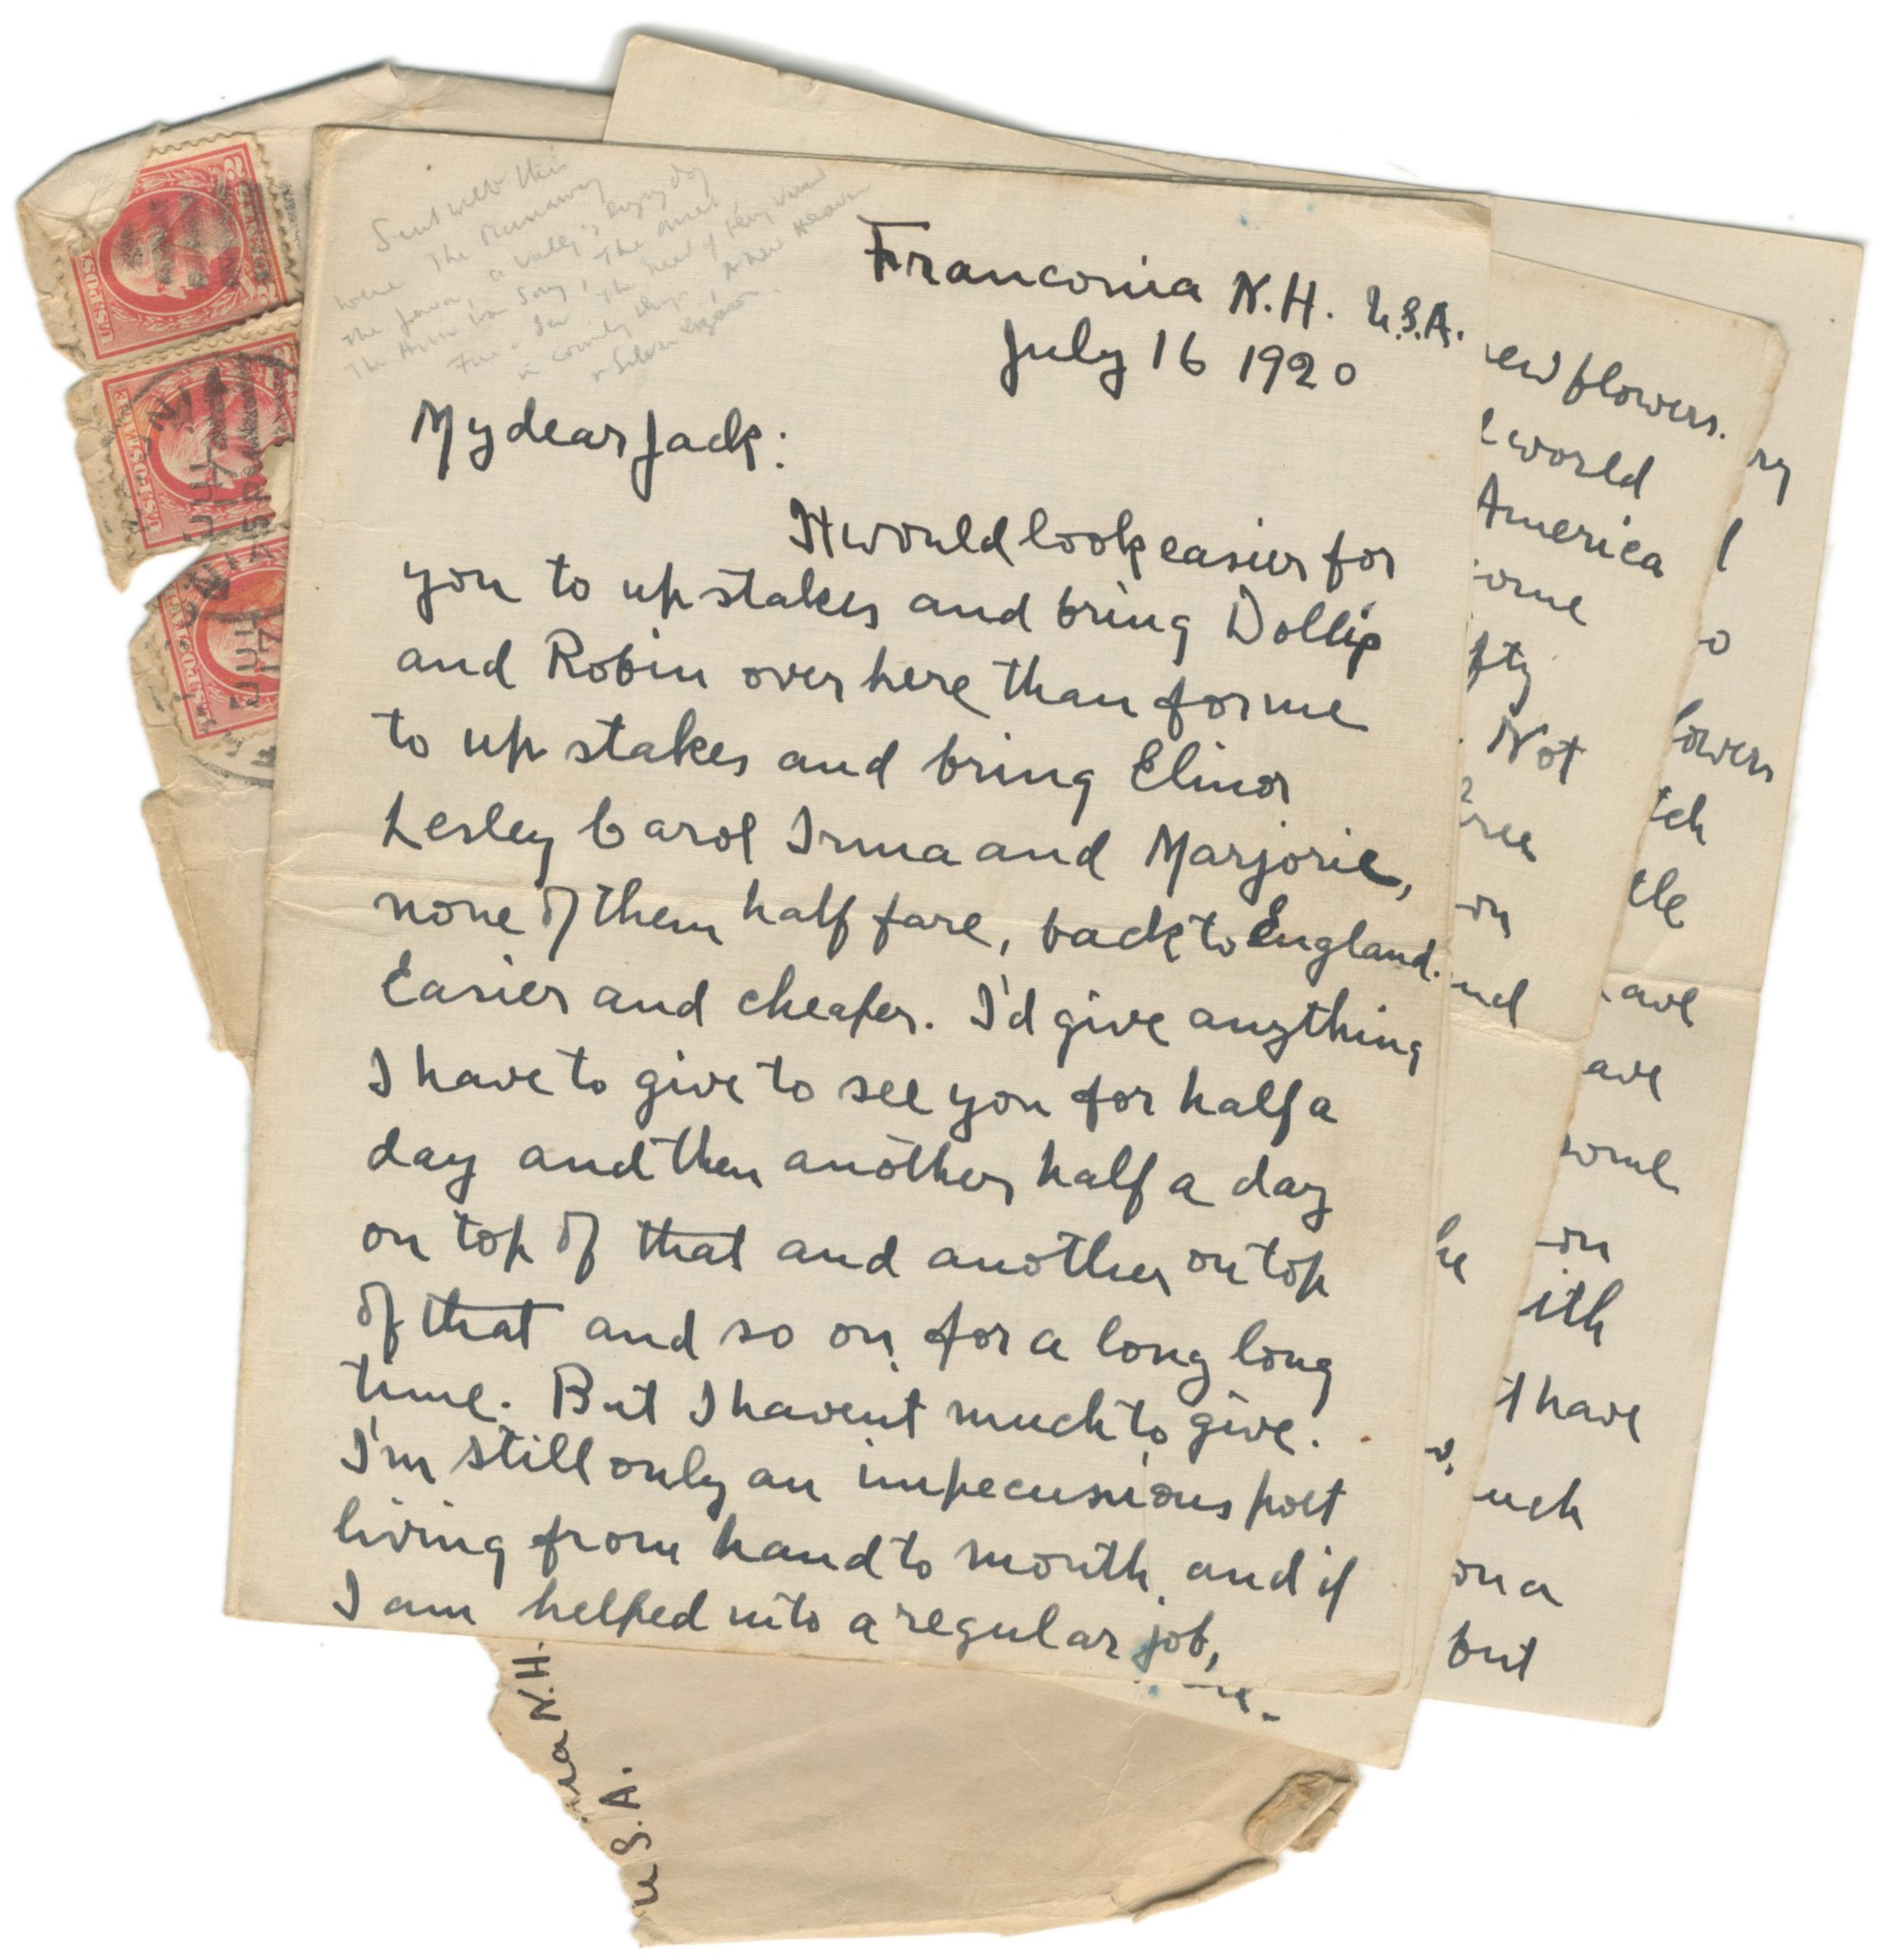 Sent with this
were The Runaway
The Aim was Song,
Fire & Ice
Franconia N.H. U.S.A.
July 16 1920
My dear Jack:
It would look easier for
you to up stakes and bring Dollie
and Robin over here than for me
to up stakes and bring Elinor
Lesley Carol Irma and Marjorie,
none of them half fare, back to England.
Easier and cheaper. I'd give anything
I have to give to see you for half a
day and then another half a day
on top of that and another on top
of that and so on for a long long
time. But I havent much to give.
I'm still only an impecunious poet
living from hand to mouth and if
I am helped into a regular job,
ew flowers.
world
America
ome
fty
Not
ree
on
nd
he
ry
o
lowers
tch
tle
ave
ave
some
on
ith
t have
uch
on a
but
N.H.
U.S.A.